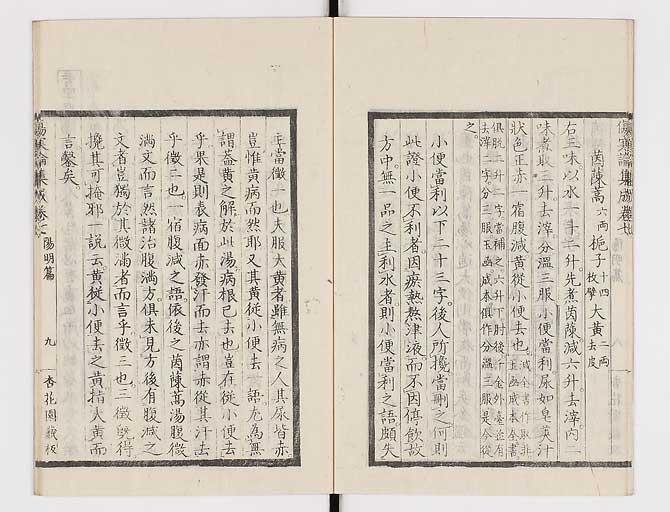 傷寒論集成卷七
陽明篇
茵蔯蒿六兩 梔子十四枚擘 大黃二兩去皮
右三味以水一十二升先煮茵蔯減六升去滓內二
味煮取三升去滓分溫三服小便當利尿如皂莢汁
狀色正赤一宿腹減黃從小便去也
之
小便當利以下二十三字後人所攙當刪之何則
此證小便不利者因瘀熱熬津液而不因停飲故
方中無一品之主利水者則小便當利之語頗失
主當徵一也夫服大黃者雖無病之人其尿皆赤
豈惟黃病而然耶又其黃從小便去一語尤為無
謂蓋黃之解於此湯病根已去也豈在從小便去
乎果是則表病而赤發汗而去亦謂赤從其汗去
乎徵二也一宿腹減之語依後之茵蔯蒿湯腹微
滿文而言然諸治腹滿方俱未見方後有腹減之
文者豈獨於其微滿者而言乎徵三也三徵既得
攙其可掩邪一說云黃從小便去之黃指大黃而
言鑿矣
傷寒論集成卷七
陽明篇
九
杏花園藏板